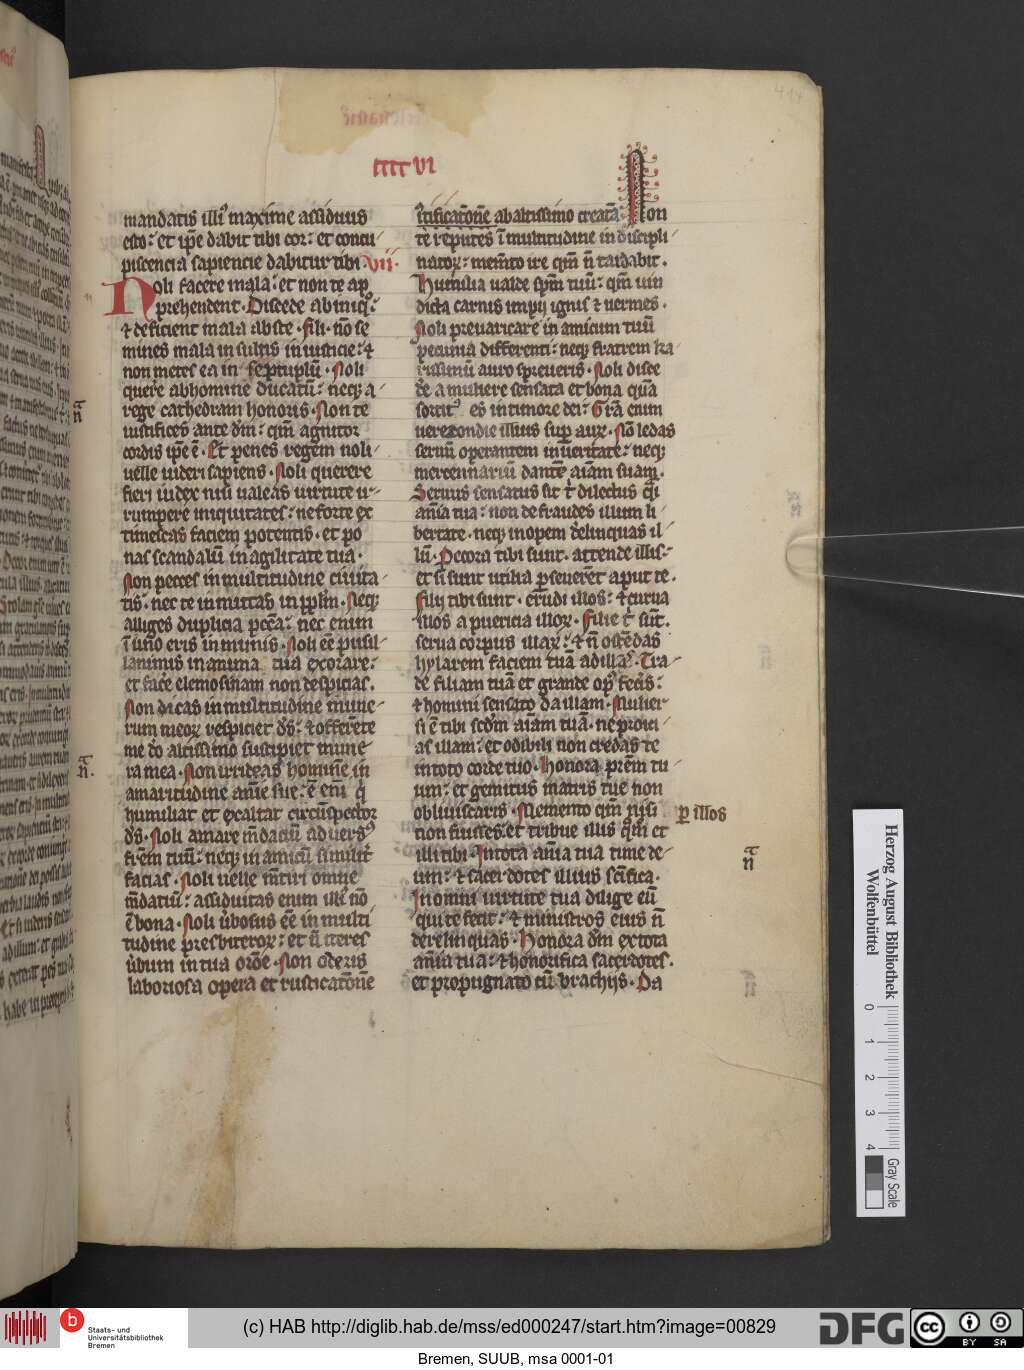 cccc vi
414
mandatis illi⁹ maxime assiduus
esto: et ip̄e dabit tibi cor: et concu-
piscencia sapiencie dabitur tibi. vii.
Noli facere mala: et non te ap
prehendent. Discede ab iniq⁹:
⁊ deficient mala abs te. fili. nō se
mines mala in sulcis iniusticie: ⁊
non metes ea in septuplū. Noli
querere ab homine ducatū: neqꝫ a
rege cathedram honoris. Non te
iustifices ante dm̄: qm̄ agnitor
cordis ip̄e ē. Et penes regem noli
uelle uideri sapiens. Noli querere
fieri iudex nisi ualeas uirtute ir-
rumpere iniquitates: ne forte ex
timescas faciem potentis. et po
nas scandalū in agilitate tua.
Non pecces in multitudine ciuita-
tis: nec te inmittas in pp̄lm. Neqꝫ
alliges duplicia pcc̄a: nec enim
ī uno eris inmunis. Noli eē pusil-
lanimis in anima tua exorare:
et face elemosinam non despicias.
Non dicas in multitudine mune-
rum meoꝝ respiciet ds̄: ⁊ offerēte
me dō altissimo suscipiet mune-
ra mea. Non irrideas hominē in
amaritudine anīe sue: ē enī q̄
humiliat et exaltat circūspector
ds̄. Noli amare m̄daciū aduers⁹
frēm tuū: neqꝫ in amicū similit̄
facias. Noli uelle m̄tiri omne
m̄datiū: assiduitas enim illi⁹ nō
ē bona. Noli ūbosus eē in multi
tudine presbiteroꝝ: et ñ iteres
ūbum in tua orōe. Non oderis
laboriosa opera et rusticatōnē
ab altissimo creatā. Non
te reputes ī multitudine indiscipli-
natoꝝ: mem̄to ire qm̄ ñ tardabit.
Humilia ualde spm̄ tuū: qm̄ uin
dicta carnis impij ignis et uermes.
Noli preuaricare in amicum tuū
pecunia differenti: neqꝫ fratrem ka-
rissimū auro spreueris. Noli disce
de a muliere sensata et bona quā
sortit⁹ es in timore dei: Gr̄a enim
uerecondie illius sup auꝝ. Nō ledas
seruū operantem in ueritate: neqꝫ
mercennariū dantē aīam suam.
Seruus sensatus sit t̄ dilectus q̄i
anīa tua: non defraudes illum li
bertate. neqꝫ inopem derelinquas il-
lū. Pecora tibi sunt. attende illis:
et si sunt utilia pseuerēt aput te.
Filij tibi sunt. erudi illos: ⁊ curua
illos a puericia illoꝝ. Filie t̄ sūt.
serua corpus illaꝝ: ⁊ ñ ostēdas
hylarem faciem tuā ad illas. Tra-
de filiam tuā et grande op⁹ fecis̄:
⁊ homini sensato da illam. Mulier
si ē tibi scdm̄ aīam tuā. ne proici-
as illam: et odibili non credas te
in toto corde tuo. Honora prēm tu-
um: et gemitus matris tue non
obliuiscaris. Memento qm̄ nisi p̱ illos
non fuisses: et tribue illis qm̄ et
illi tibi. In tota anīa tua time de-
um: ⁊ sacerdotes illius scīfica.
In omni uirtute tua dilige eū
qui te fecit: ⁊ ministros eius ñ
derelinquas. Honora dm̄ ex tota
anīa tua: ⁊ honorifica sacerdotes.
et propugnato cū brachijs. Da
Herzog August Bibliothek
Wolfenbüttel
0 1 2 3 4
Gray Scale
b Staats- und
Universitätsbibliothek
Bremen
(c) HAB http://diglib.hab.de/mss/ed000247/start.htm?image=00829
DFG
cc BY SA
Bremen, SUUB, msa 0001-01